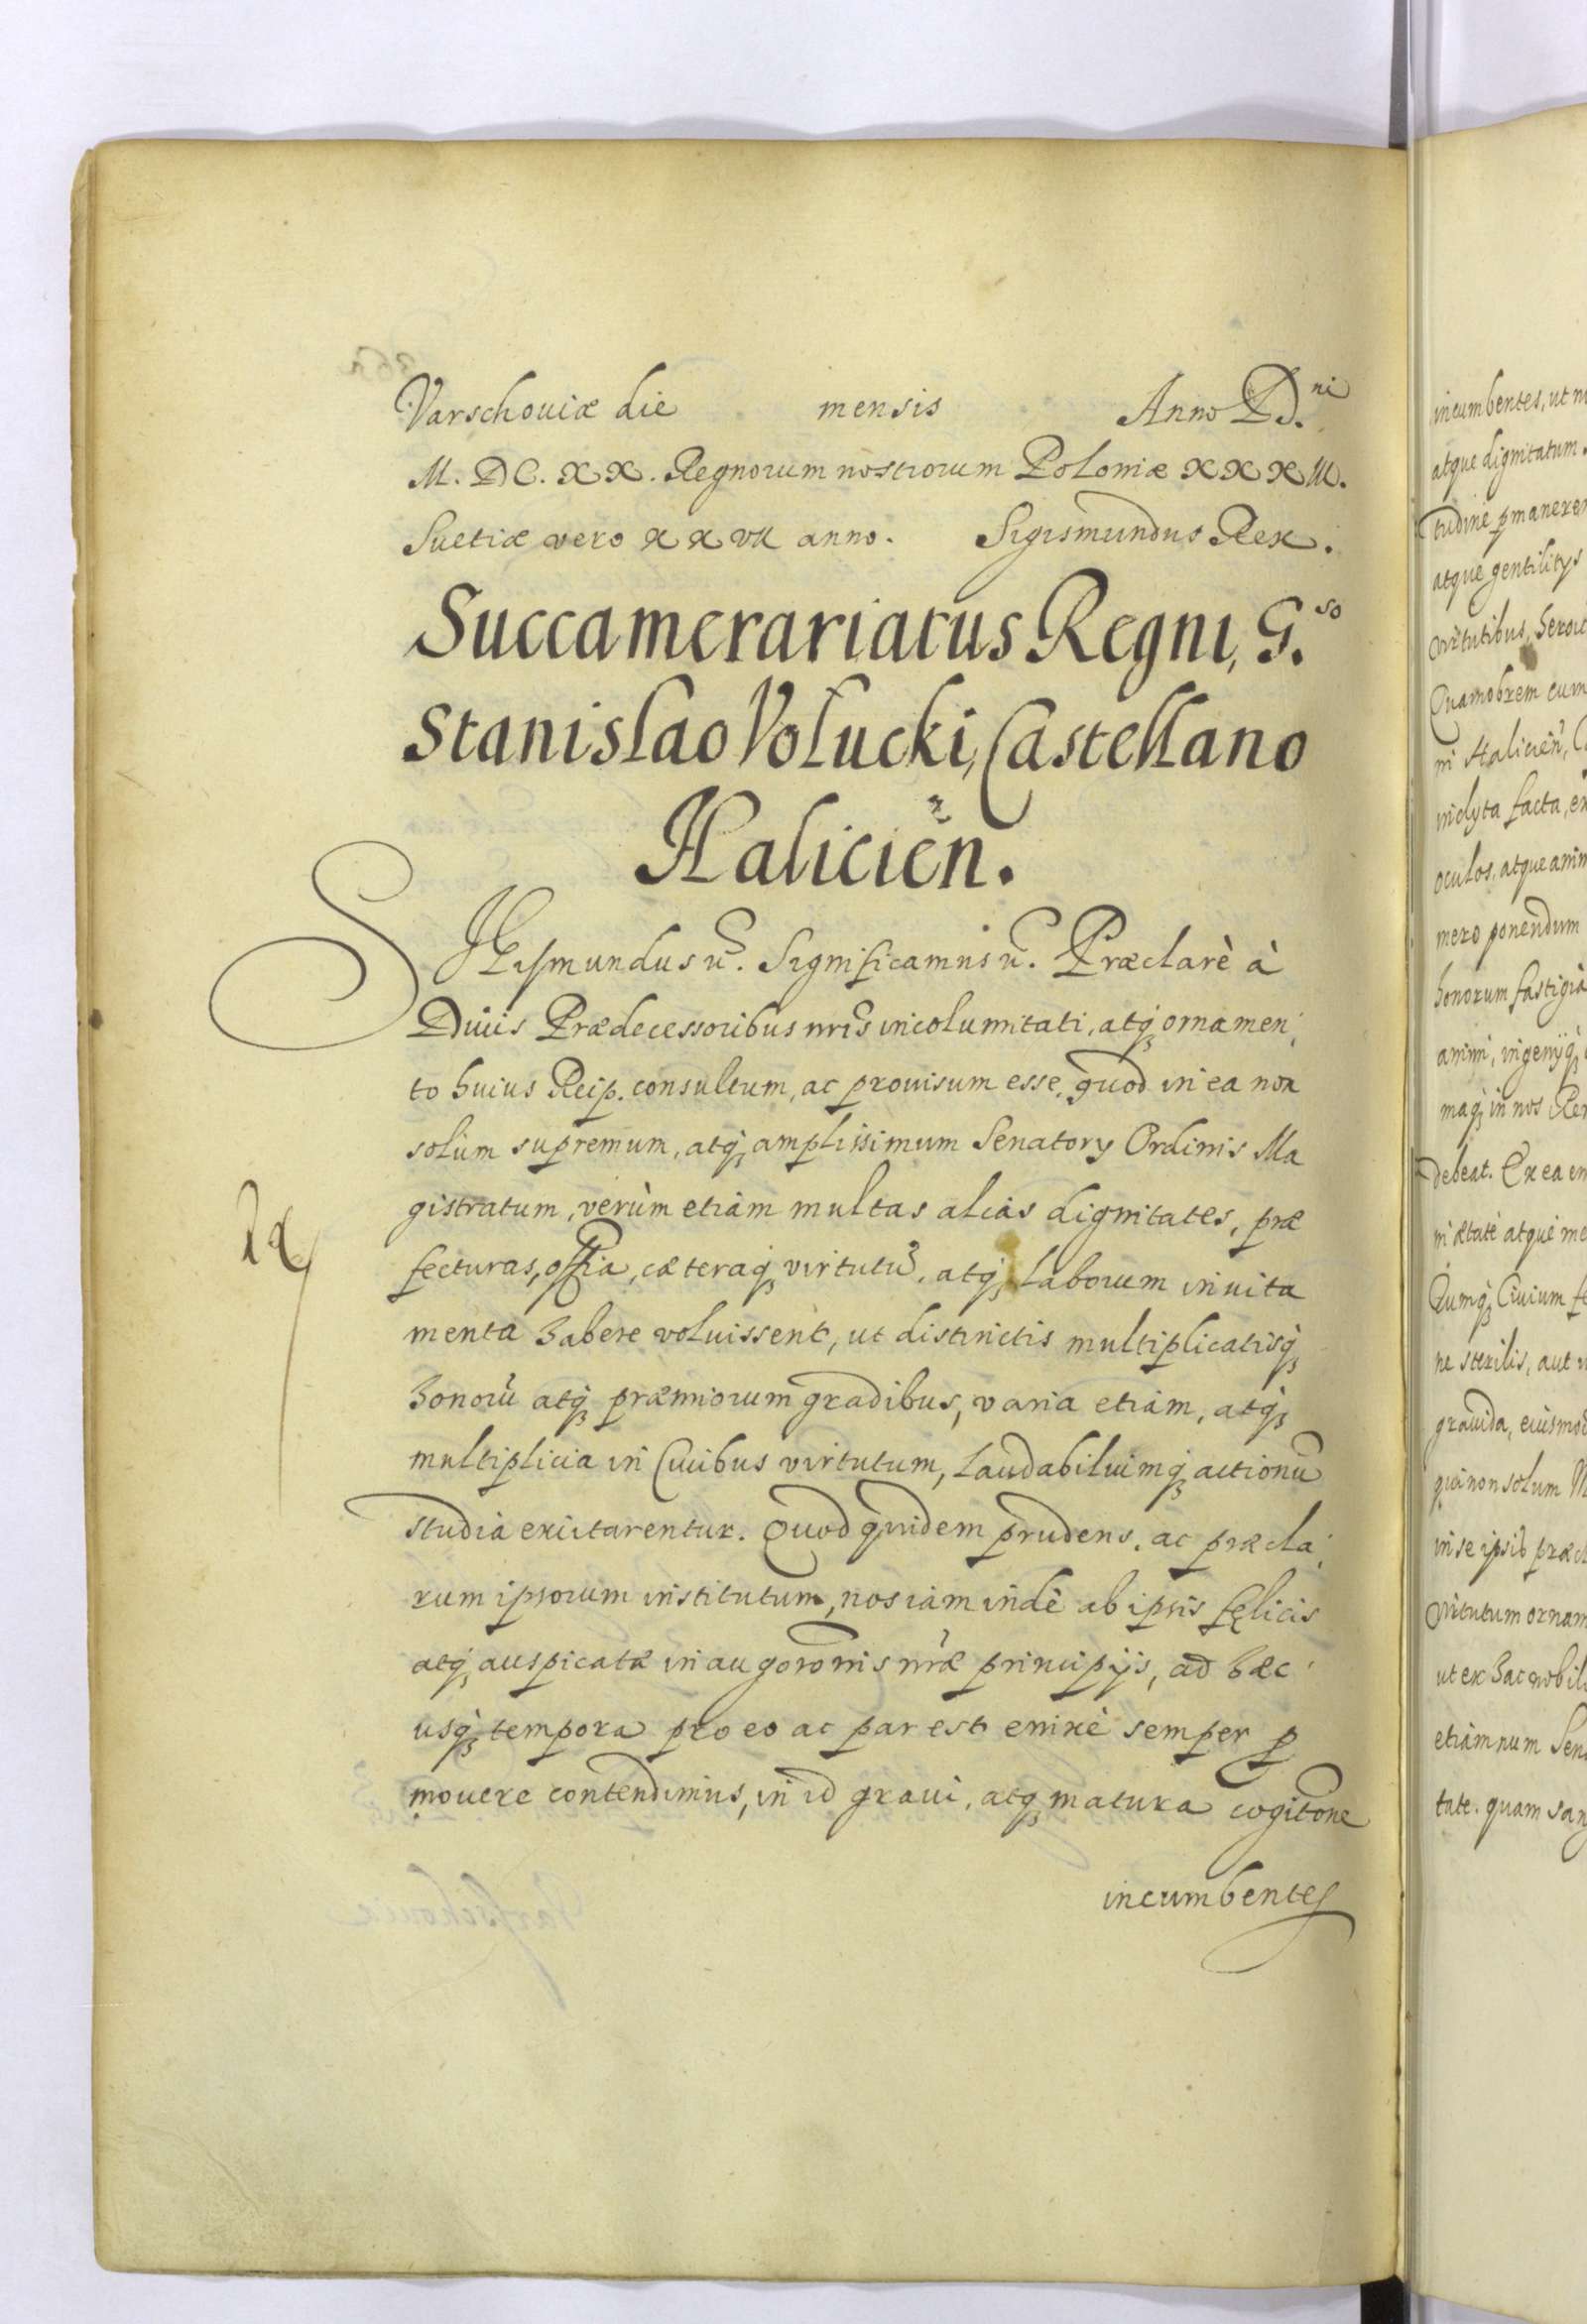 Varschouiæ die mensis Anno Dd.ni
M. DC. XX. Regnorum nostrorum Poloniæ XXXIII.
Suetiæ vero XXVII anno. Sigismundus Rex.
Succamerariatus Regni, G.so
Stanislao Volucki, Castellano
Halicien̄.
SIGismundus ꝛc̄. Significamus ꝛc̄. Præclarè à
Diuis Prædecessoribus nr̄is incolumitati, atq̨ ornamen,
to huius Reip. consultum, ac prouisum esse, quod in ea non
solùm supremum, atq̨ amplissimum Senatorÿ Ordinis Ma
gistratum, verùm etiam multas alias dignitates, præ
fecturas, offia, cæteraq̨ virtutū, atq̨ laborum inuita
menta habere voluissent, ut distinctis multiplicatisq̨
honorū atq̨ præmiorum gradibus, varia etiam, atq̨
multiplicia in Ciuibus virtutum, laudabiliumq̨ actionū
studia excitarentur. Quod quidem prudens, ac præcla,
rum ipsorum institutum, nos iam indè ab ipsis fęlicis
atq̨ auspicatæ inaugoronis nr̄æ principijs, ad hæc
usq̨ tempora pro eo ac par est enixè semper ꝓ
mouere contendimus, in id graui, atq̨ matura cogitōne
incumbentes
incumbentes, ut n
atque dignitatum
tudine ꝑmanere
atque gentilitÿs
virtutibus, heroi
Quamobrem cum
ni Halicień, C
inclyta facta, e
oculos, atque anim
mero ponendum
honorum fastigia
animi, ingenijq̨
maq̨ in nos Re
debeat. Ex ea en
ni ætate atque me
Cumq̨ Ciuium fe
ne sterilis, aut
grauida, eiusmod
qui non solum M
in se ipsis præcl
virtutum ornam
ut ex hac nobil
etiamnum Sen
tate. quam san